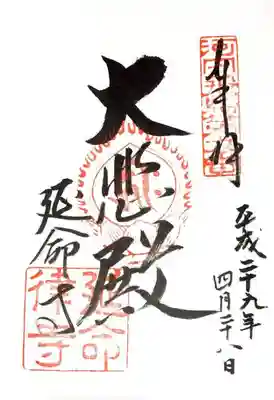 奉拝
平成二十九年
四月二十八日
大悲殿
延命寺